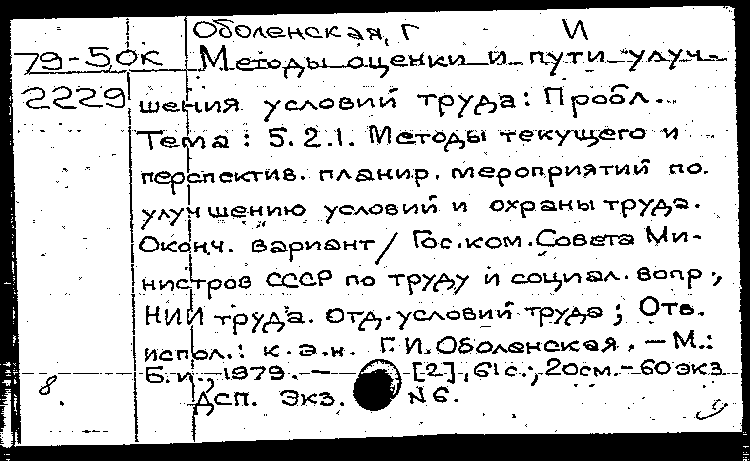 Оболенская, Г И
79-50к Методы оценки и пути улуч-
2229 шения условий труда: Пробл.
Тема: 5.2.1. Методы текущего и
перспектив. планир. мероприятий по.
улучшению условий и охраны труда.
Оконч. вариант / Гос.ком.Совета Ми-
нистров СССР по труду и социал. вопр.,
НИИ труда. Отд. условий труда; Отв.
испол.: к.э.н. Г.И.Оболенская. — М.:
Б.и., 1979. — [2], 61 с.; 20см. — 60 экз
8. Дсп. Экз. N6.